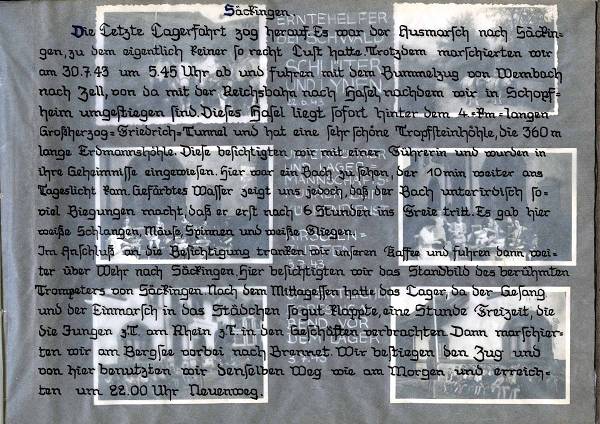 Säckingen
Die Letzte Lagerfahrt zog herauf. Es war der Ausmarsch nach Säckin=
gen, zu dem eigentlich keiner so recht Lust hatte. Trotzdem marschierten wir
am 30.7.43 um 5.45 Uhr ab und fuhren mit dem Bummelzug von Wembach
nach Zell, von da mit der Reichsbahn nach Hasel nachdem wir in Schopf=
heim umgestiegen sind. Dieses Hasel liegt sofort hinter dem 4=km=langen
Großherzog=Friedrich=Tunnel und hat eine sehr schöne Tropfsteinhöhle, die 360 m
lange Erdmannshöhle. Diese besichtigten wir mit einer Führerin und wurden in
ihre Geheimnisse eingewiesen. Hier war ein Bach zu sehen, der 10 min weiter ans
Tageslicht kam. Gefärbtes Wasser zeigt uns jedoch, daß der Bach unterirdisch so=
viel Biegungen macht, daß er erst nach 6 Stunden ins Freie tritt. Es gab hier
weiße Schlangen, Mäuse, Spinnen und weiße Fliegen.
Im Anschluß an die Besichtigung tranken wir unseren Kaffee und fuhren dann wei=
ter über Wehr nach Säckingen. Hier besichtigten wir das Standbild des berühmten
Trompeters von Säckingen. Nach dem Mittagessen hatte das Lager, da der Gesang
und der Einmarsch in das Städchen so gut klappte, eine Stunde Freizeit, die
die Jungen z.T. am Rhein z.T. in den Geschäften verbrachten. Dann marschier=
ten wir am Bergsee vorbei nach Brennet. Wir bestiegen den Zug und
von hier benutzten wir denselben Weg wie am Morgen und erreich=
ten um 22.00 Uhr Neuenweg.
ERNTEHELFER
DEM LAGER